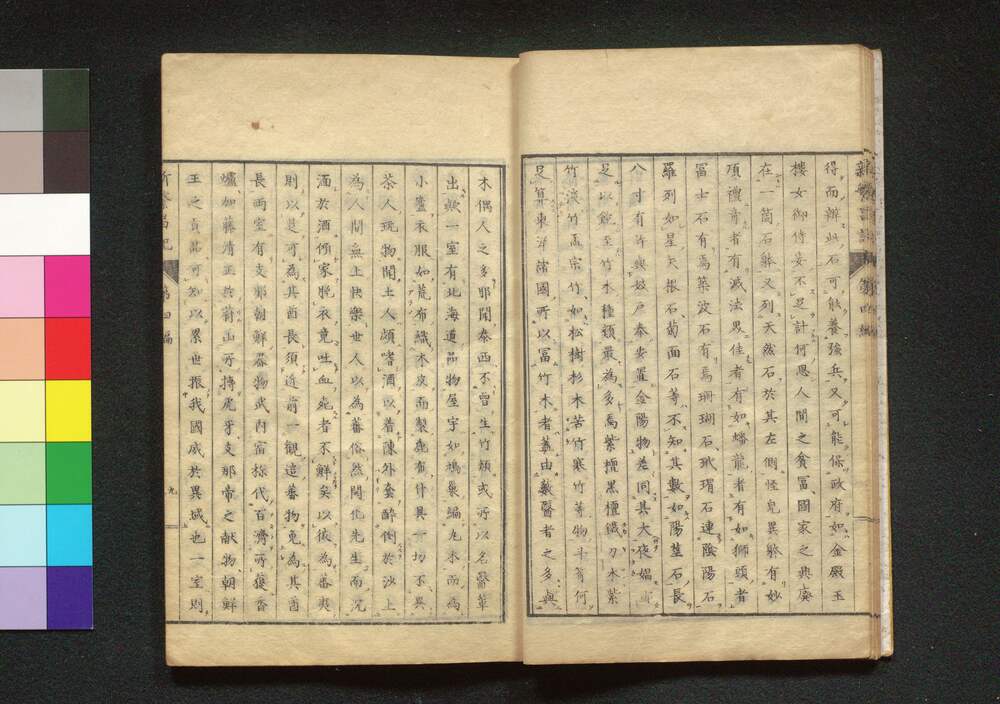 得而辨此石可能養強兵又可能保政府如金殿玉
樓女御侍妾不足計何思人間之貧冨國家之興廢
在一箇石躰又列天然石於其左側怪皃異躰有妙
項禮者有滅法男佳者有如蟠龍者有如獅頭者
冨士石有焉築波石有焉珊瑚石玳瑁石連陰陽石
羅列如星矢根石菊面石等不知其數如陽莖石長
八寸有許與奴戸奉安置金陽物差同其大夜媚
足以飽至竹木種類最為多焉紫檀黒檀鐵刀木紫
竹淡竹孟宗竹如松樹杉木苦竹寒竹等物斗筲何
足算東洋諸國所以冨竹木者蓋由藪醫者之多與
木偶人之多耶聞泰西不曾生竹類或所以名醫輩
出歟一室有北海道品物屋宇如鳩巣編丸木而為
小廬衣服如荒布織木皮而製鹿布什具一切不異
茶人玩物聞土人頗嗜酒以着陳外套醉倒於沙上
為人間無上快樂世人以為蕃俗然開化先生而沉
湎於酒傾家脱衣竟吐血斃者不鮮矣以彼為蕃夷
則以是可為其酋長須進前一觀這蕃物免為其酋
長両室有支那朝鮮器物武内宿祢代百濟所獲香
爐加藤清正於蔚山所搏虎牙支那帝之献物朝鮮
王之貢品可妙以累世振我國威於異域也一室則
第四編
九